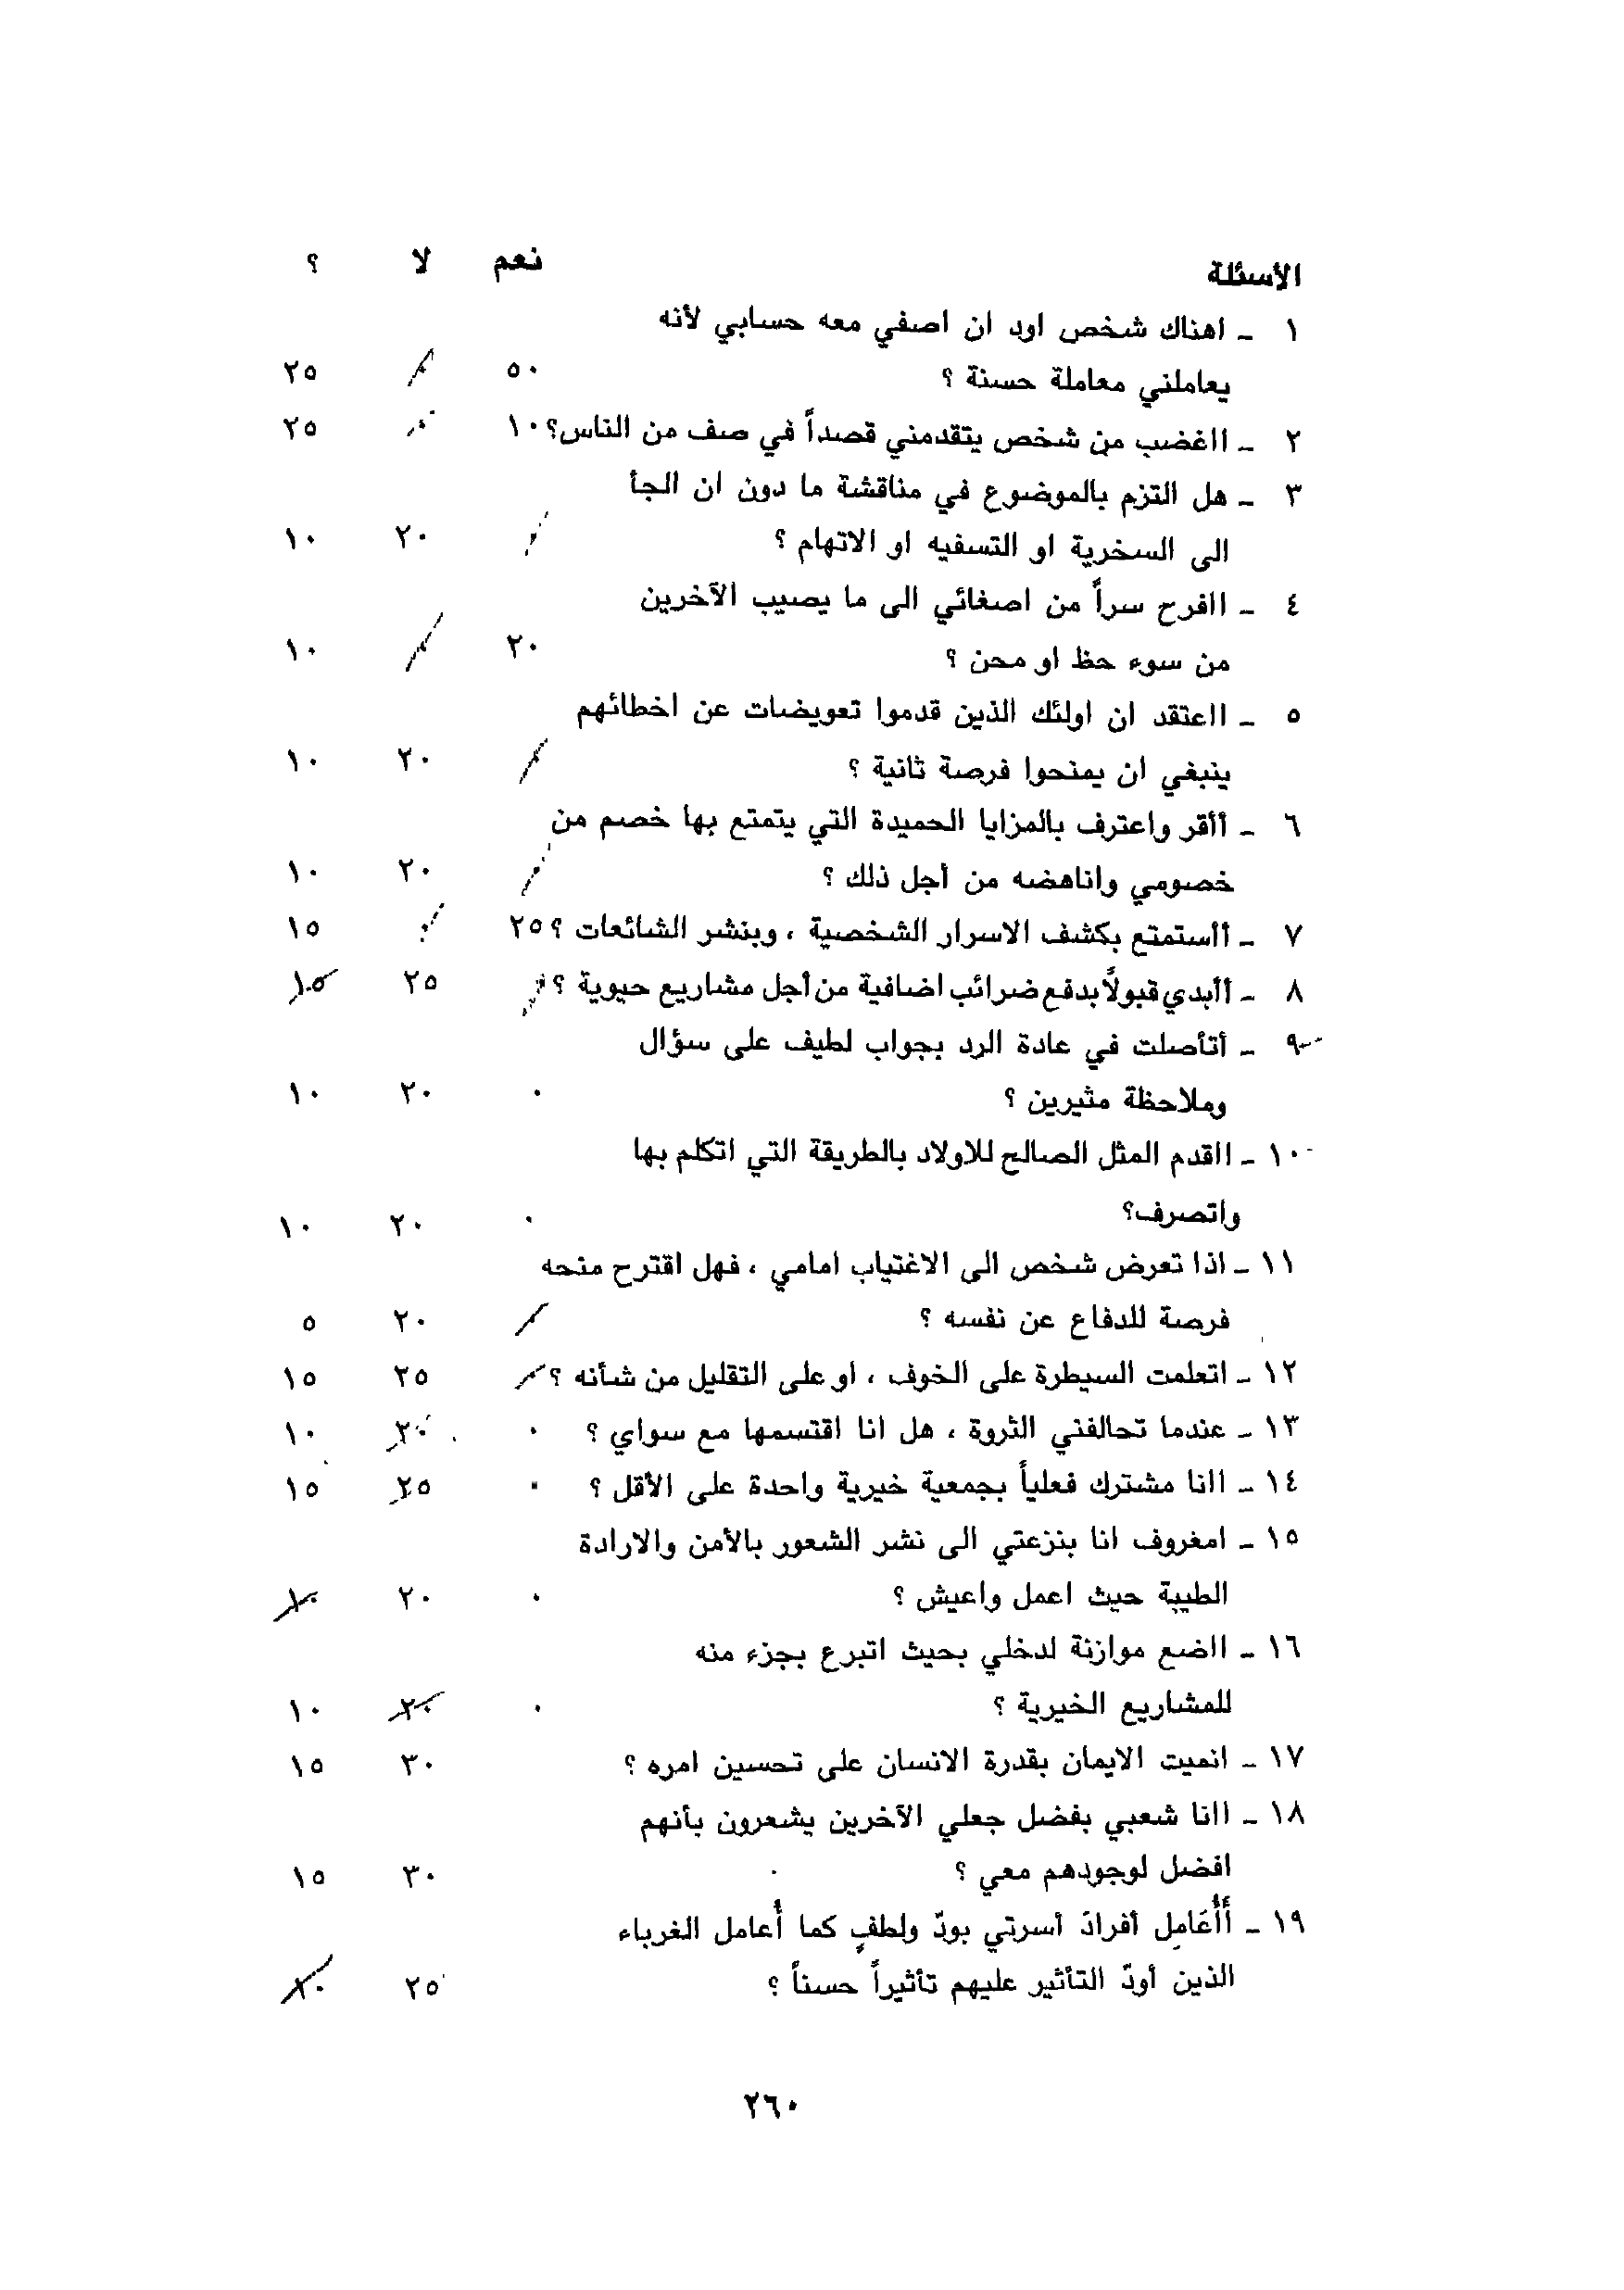 الأسئلة نعم لا ؟
١ - اهناك شخص اود ان اصفي معه حسابي لأنه
يعاملني معاملة حسنة ؟ ٥٠ ٠ ٢٥
٢ - ااغضب من شخص يتقدمني قصداً في صف من الناس؟ ١٠ ٠ ٢٥
٣ - هل التزم بالموضوع في مناقشة ما دون ان الجأ
الى السخرية او التسفيه او الاتهام ؟ ٠ ٢٠ ١٠
٤ - اافرح سراً من اصغائي الى ما يصيب الآخرين
من سوء حظ او محن ؟ ٢٠ ٠ ١٠
٥ - ااعتقد ان اولئك الذين قدموا تعويضات عن اخطائهم
ينبغي ان يمنحوا فرصة ثانية ؟ ٠ ٢٠ ١٠
٦ - أأقر واعترف بالمزايا الحميدة التي يتمتع بها خصم من
خصومي واناهضه من أجل ذلك ؟ ٠ ٢٠ ١٠
٧ - أأستمتع بكشف الاسرار الشخصية ، وبنشر الشائعات ؟ ٢٥ ٠ ١٥
٨ - أأبدي قبولاً بدفع ضرائب اضافية من أجل مشاريع حيوية ؟ ٠ ٢٥ ١٥
٩ - أتأصلت في عادة الرد بجواب لطيف على سؤال
وملاحظة مثيرين ؟ ٠ ٢٠ ١٠
١٠ - ااقدم المثل الصالح للاولاد بالطريقة التي اتكلم بها
واتصرف؟ ٠ ٢٠ ١٠
١١ - اذا تعرض شخص الى الاغتياب امامي ، فهل اقترح منحه
فرصة للدفاع عن نفسه ؟ ٠ ٢٠ ٥
١٢ - اتعلمت السيطرة على الخوف ، او على التقليل من شأنه ؟ ٠ ٢٥ ١٥
١٣ - عندما تحالفني الثروة ، هل انا اقتسمها مع سواي ؟ ٠ ٢٠ ١٠
١٤ - اانا مشترك فعلياً بجمعية خيرية واحدة على الأقل ؟ ٠ ٢٥ ١٥
١٥ - امغروف انا بنزعتي الى نشر الشعور بالأمن والارادة
الطيبة حيث اعمل واعيش ؟ ٠ ٢٠ ١٠
١٦ - ااضع موازنة لدخلي بحيث اتبرع بجزء منه
للمشاريع الخيرية ؟ ٠ ٢٠ ١٠
١٧ - انميت الايمان بقدرة الانسان على تحسين امره ؟ ٣٠ ١٥
١٨ - اانا شعبي بفضل جعلي الآخرين يشعرون بأنهم
افضل لوجودهم معي ؟ ٣٠ ١٥
١٩ - أَأُعَامِل أفرادَ أسرتي بودّ ولطفٍ كما أُعامل الغرباء
الذين أودّ التأثير عليهم تأثيراً حسناً ؟ ٢٥ ٢٠
٢٦٠